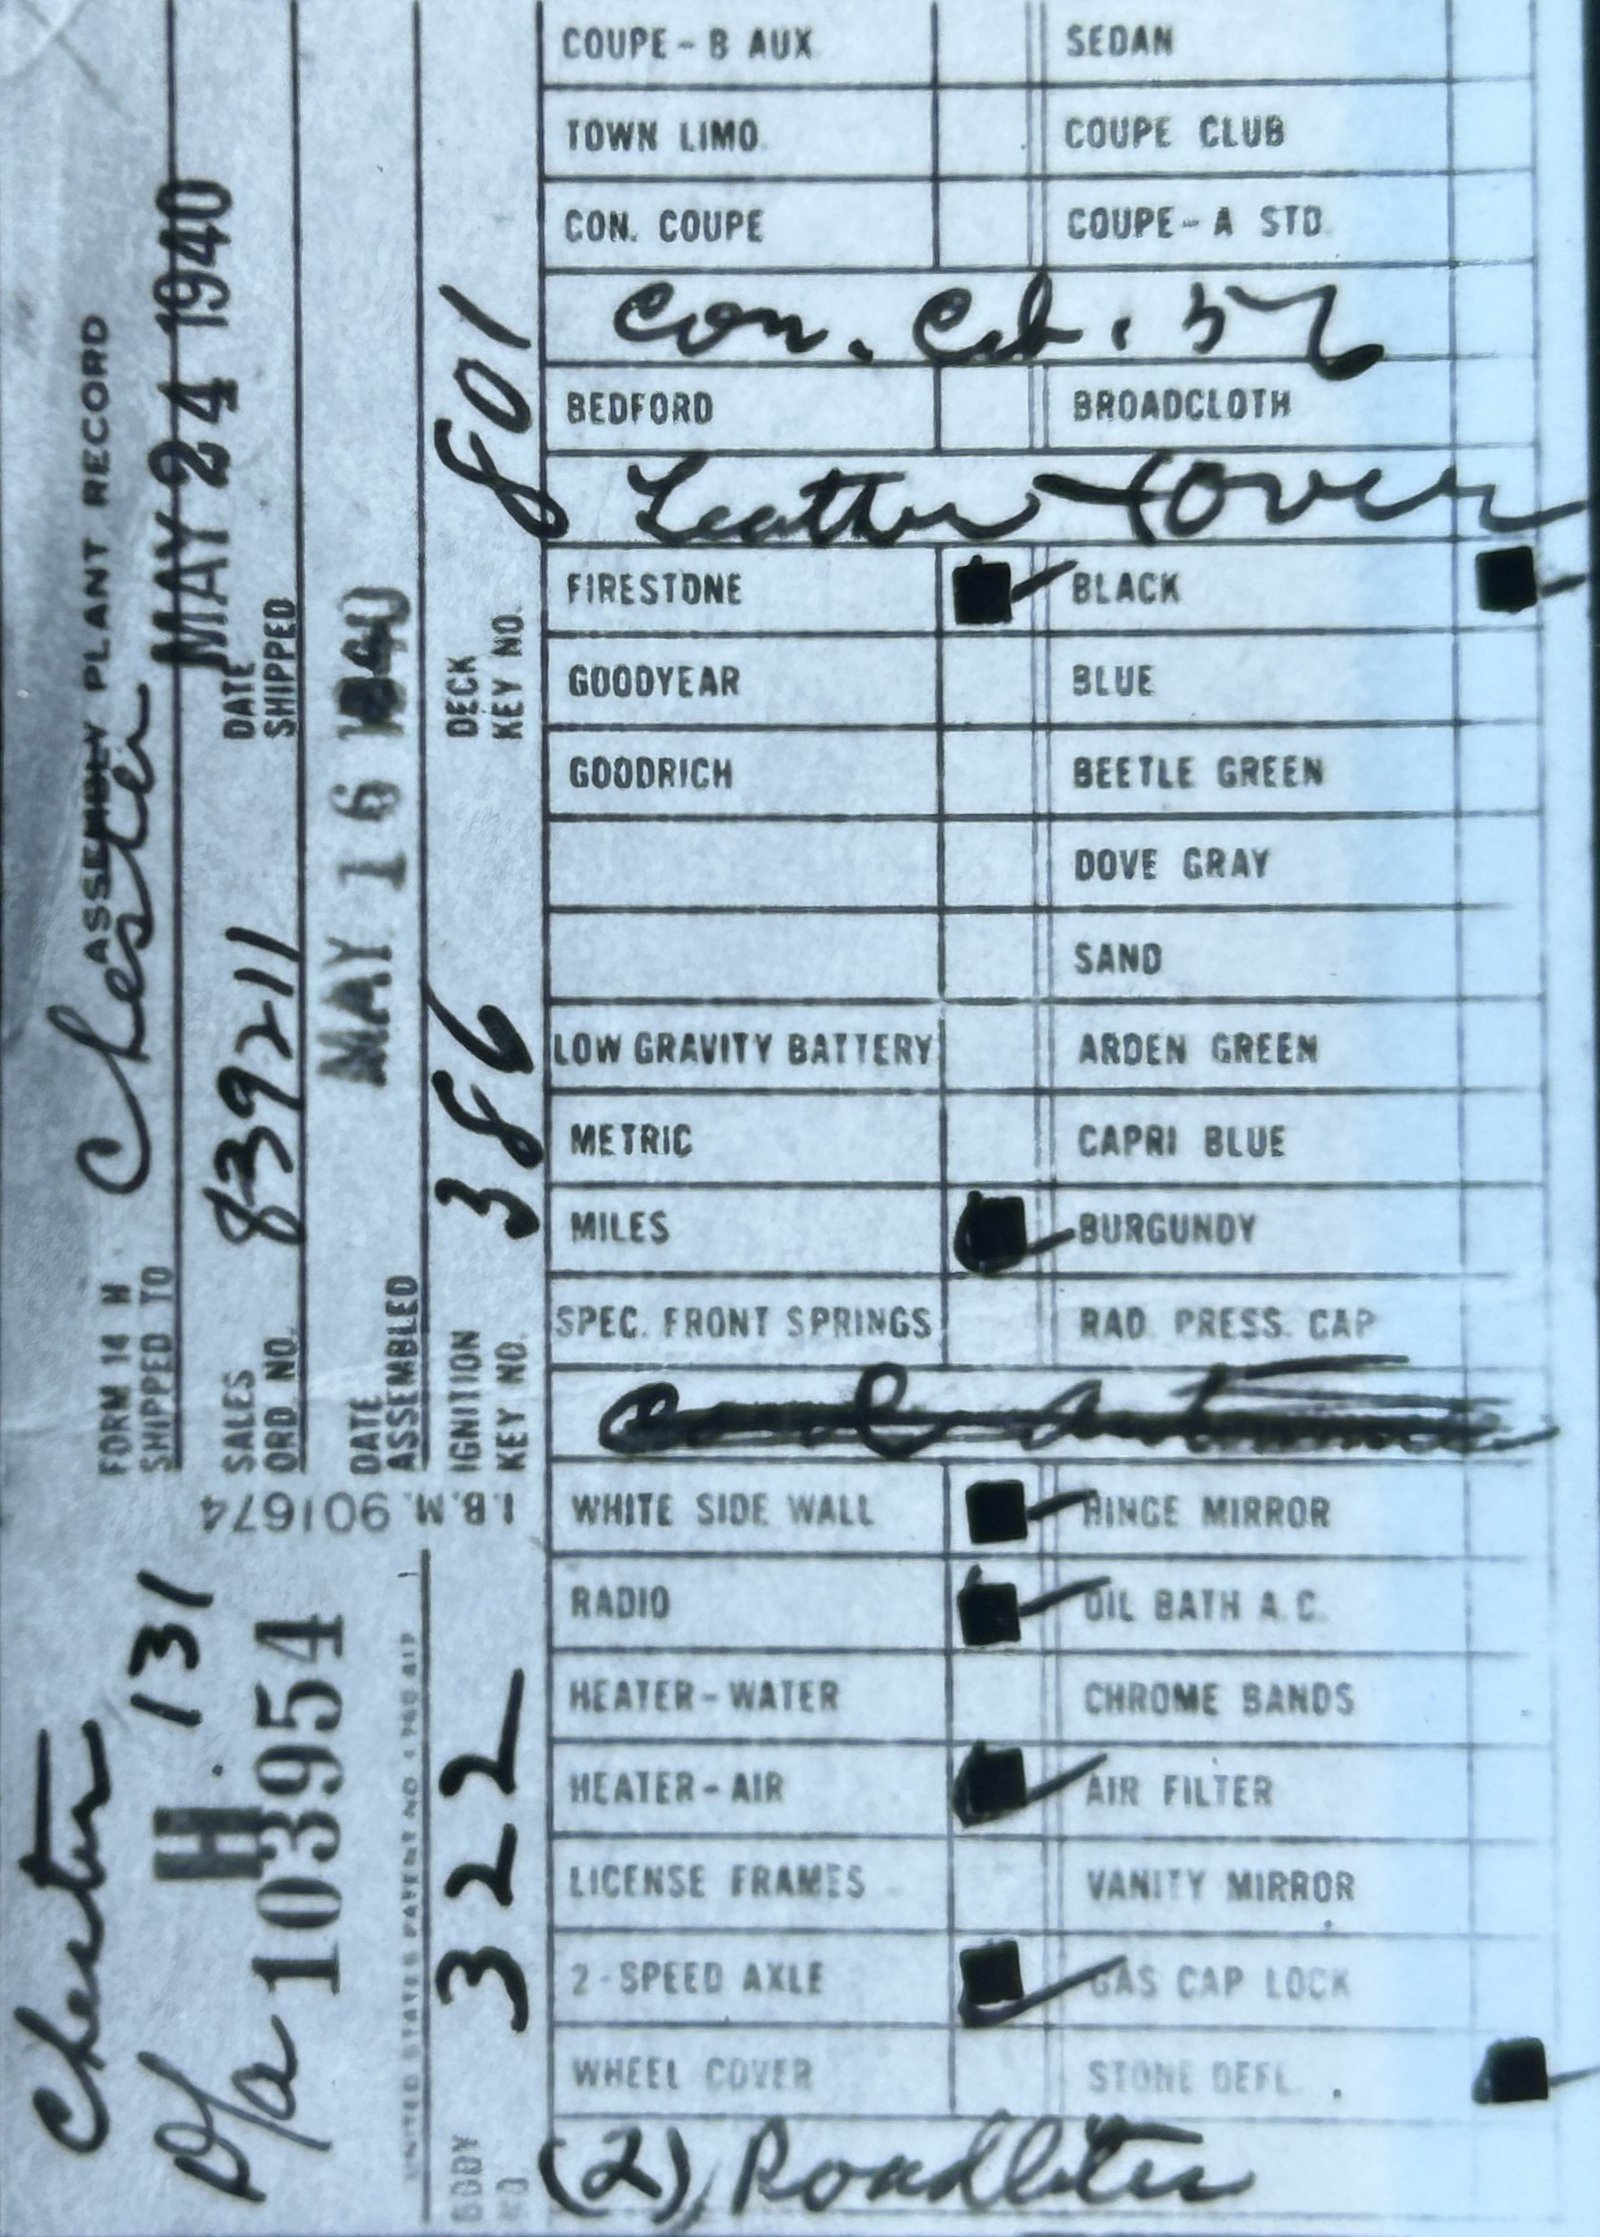 Chester
D/a H. 131
H
103954
UNITED STATES PATENT NO
BODY NO 322
I.B.M. 901674
FORM 14 H ASSEMBLY PLANT RECORD
SHIPPED TO Chester
SALES ORD. NO. 839211 DATE SHIPPED MAY 24 1940
DATE ASSEMBLED MAY 16 1940
IGNITION KEY NO. 386 DECK KEY NO. 801
COUPE - B AUX SEDAN
TOWN LIMO. COUPE CLUB
CON. COUPE COUPE - A STD.
Con. Cab. 56
BEDFORD BROADCLOTH
Leather
FIRESTONE BLACK
GOODYEAR BLUE
GOODRICH BEETLE GREEN
DOVE GRAY
SAND
LOW GRAVITY BATTERY ARDEN GREEN
METRIC CAPRI BLUE
MILES BURGUNDY
SPEC. FRONT SPRINGS RAD. PRESS. CAP
WHITE SIDE WALL HINGE MIRROR
RADIO OIL BATH A.C.
HEATER - WATER CHROME BANDS
HEATER - AIR AIR FILTER
LICENSE FRAMES VANITY MIRROR
2 - SPEED AXLE GAS CAP LOCK
WHEEL COVER STONE DEFL.
(2) Roadlites